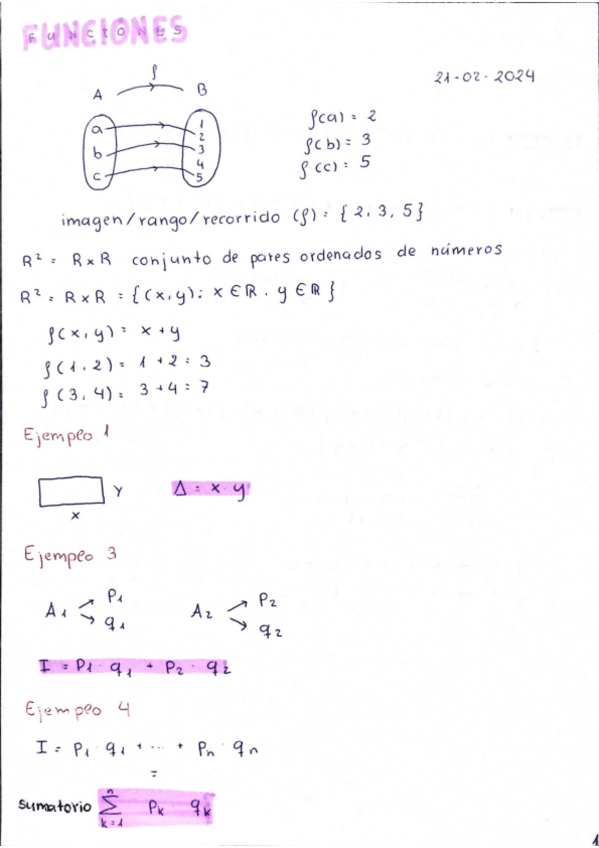 FUNCIONES
21-02-2024
A f B
a 1
2
b 3
4
c 5
f(a) = 2
f(b) = 3
f(c) = 5
imagen/rango/recorrido (f) = {2, 3, 5}
R² = R×R conjunto de pares ordenados de números
R² = R×R = {(x,y): x ∈ ℝ, y ∈ ℝ}
f(x,y) = x+y
f(1,2) = 1+2 = 3
f(3,4) = 3+4 = 7
Ejemplo 1
y
x
A = x · y
Ejemplo 3
A₁ p₁ q₁
A₂ p₂ q₂
I = p₁ · q₁ + p₂ · q₂
Ejemplo 4
I = p₁ · q₁ + ... + pₙ · qₙ
=
sumatorio ∑ₖ₌₁ⁿ pₖ · qₖ
1